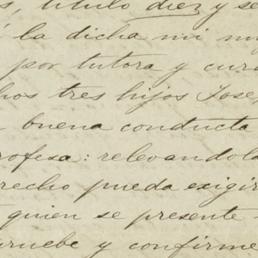 s, título diez y se
la dicha mi mu
por tutora y cura
hos tres hijos Jose
buena conducta
rofesa: relevandola
recho pueda exigir
quien se presente
ruebe y confirme